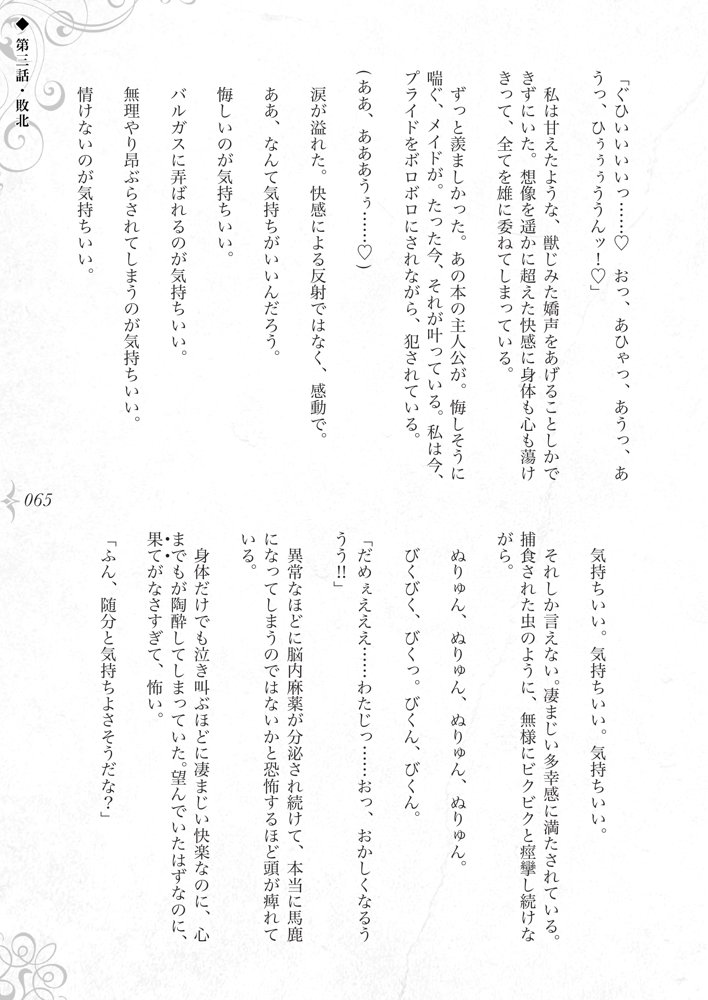 ◆ 第三話・敗北
「ぐひいいいいっ……♡ おっ、あひゃっ、あうっ、あ
うっ、ひぅぅぅううんッ！♡」
私は甘えたような、獣じみた嬌声をあげることしかで
きずにいた。想像を遥かに超えた快感に身体も心も蕩け
きって、全てを雄に委ねてしまっている。
ずっと羨ましかった。あの本の主人公が。悔しそうに
喘ぐ、メイドが。たった今、それが叶っている。私は今、
プライドをボロボロにされながら、犯されている。
(ああ、あああうぅ……♡)
涙が溢れた。快感による反射ではなく、感動で。
ああ、なんて気持ちがいいんだろう。
悔しいのが気持ちいい。
バルガスに弄ばれるのが気持ちいい。
無理やり昂ぶらされてしまうのが気持ちいい。
情けないのが気持ちいい。
気持ちいい。気持ちいい。気持ちいい。
それしか言えない。凄まじい多幸感に満たされている。
捕食された虫のように、無様にビクビクと痙攣し続けな
がら。
ぬりゅん、ぬりゅん、ぬりゅん、ぬりゅん。
びくびく、びくっ。びくん、びくん。
「だめぇえええ……わたじっ……おっ、おかしくなるう
うう!!」
異常なほどに脳内麻薬が分泌され続けて、本当に馬鹿
になってしまうのではないかと恐怖するほど頭が痺れて
いる。
身体だけでも泣き叫ぶほどに凄まじい快楽なのに、心
までもが陶酔してしまっていた。望んでいたはずなのに、
果てがなさすぎて、怖い。
「ふん、随分と気持ちよさそうだな？」
065